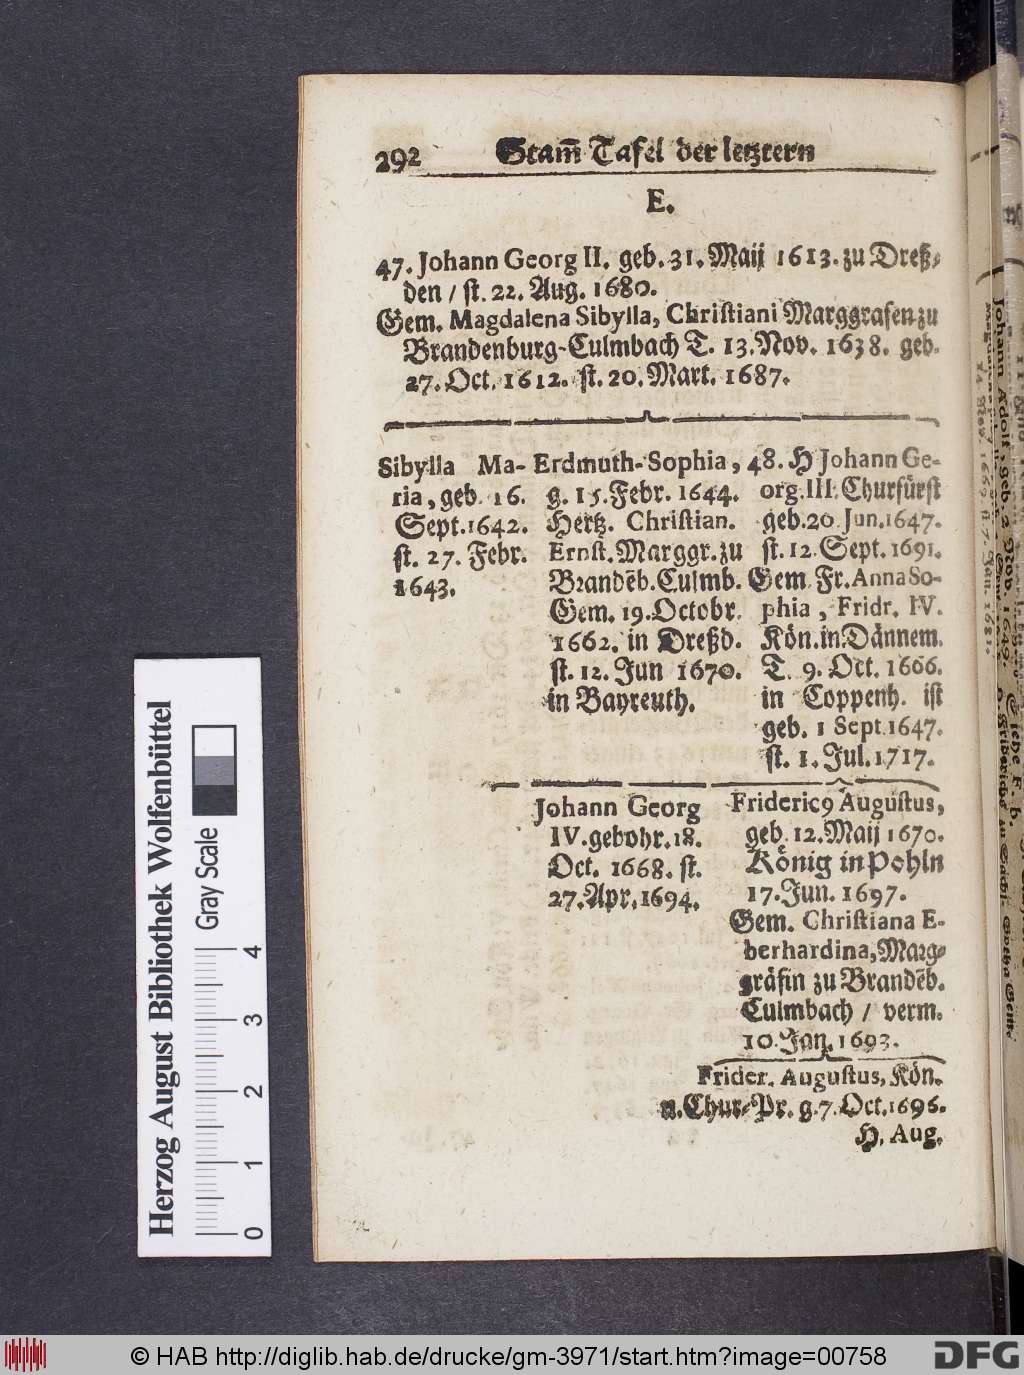 292 Stam̃ Tafel der letztern
E.
47. Johann Georg II. geb. 31. Maij 1613. zu Dreß-
den / st. 22. Aug. 1680.
Gem. Magdalena Sibylla, Christiani Marggrafen zu
Brandenburg-Culmbach T. 13. Nov. 1638. geb.
27. Oct. 1612. st. 20. Mart. 1687.
Sibylla Ma-
ria, geb. 16.
Sept. 1642.
st. 27. Febr.
1643.
Erdmuth-Sophia,
g. 15. Febr. 1644.
Hertz. Christian.
Ernst. Marggr. zu
Brandẽb. Culmb.
Gem. 19. Octobr.
1662. in Dreßd.
st. 12. Jun 1670.
in Bayreuth.
48. H Johann Ge-
org. III. Churfürst
geb. 20 Jun. 1647.
st. 12. Sept. 1691.
Gem. Fr. Anna So-
phia, Fridr. IV.
Kön. in Dännem.
T. 9. Oct. 1606.
in Coppenh. ist
geb. 1 Sept. 1647.
st. 1. Jul. 1717.
Johann Georg
IV. gebohr. 18.
Oct. 1668. st.
27. Apr. 1694.
Frideric9 Augustus,
geb. 12. Maij 1670.
König in Pohln
17. Jun. 1697.
Gem. Christiana E-
berhardina, Marg-
gräfin zu Brandẽb.
Culmbach / verm.
10. Jan. 1693.
Frider. Augustus, Kön.
u. Chur-Pr. g. 7. Oct. 1696.
H. Aug.
Herzog August Bibliothek Wolfenbüttel
Gray Scale
0 1 2 3 4
© HAB http://diglib.hab.de/drucke/gm-3971/start.htm?image=00758
DFG